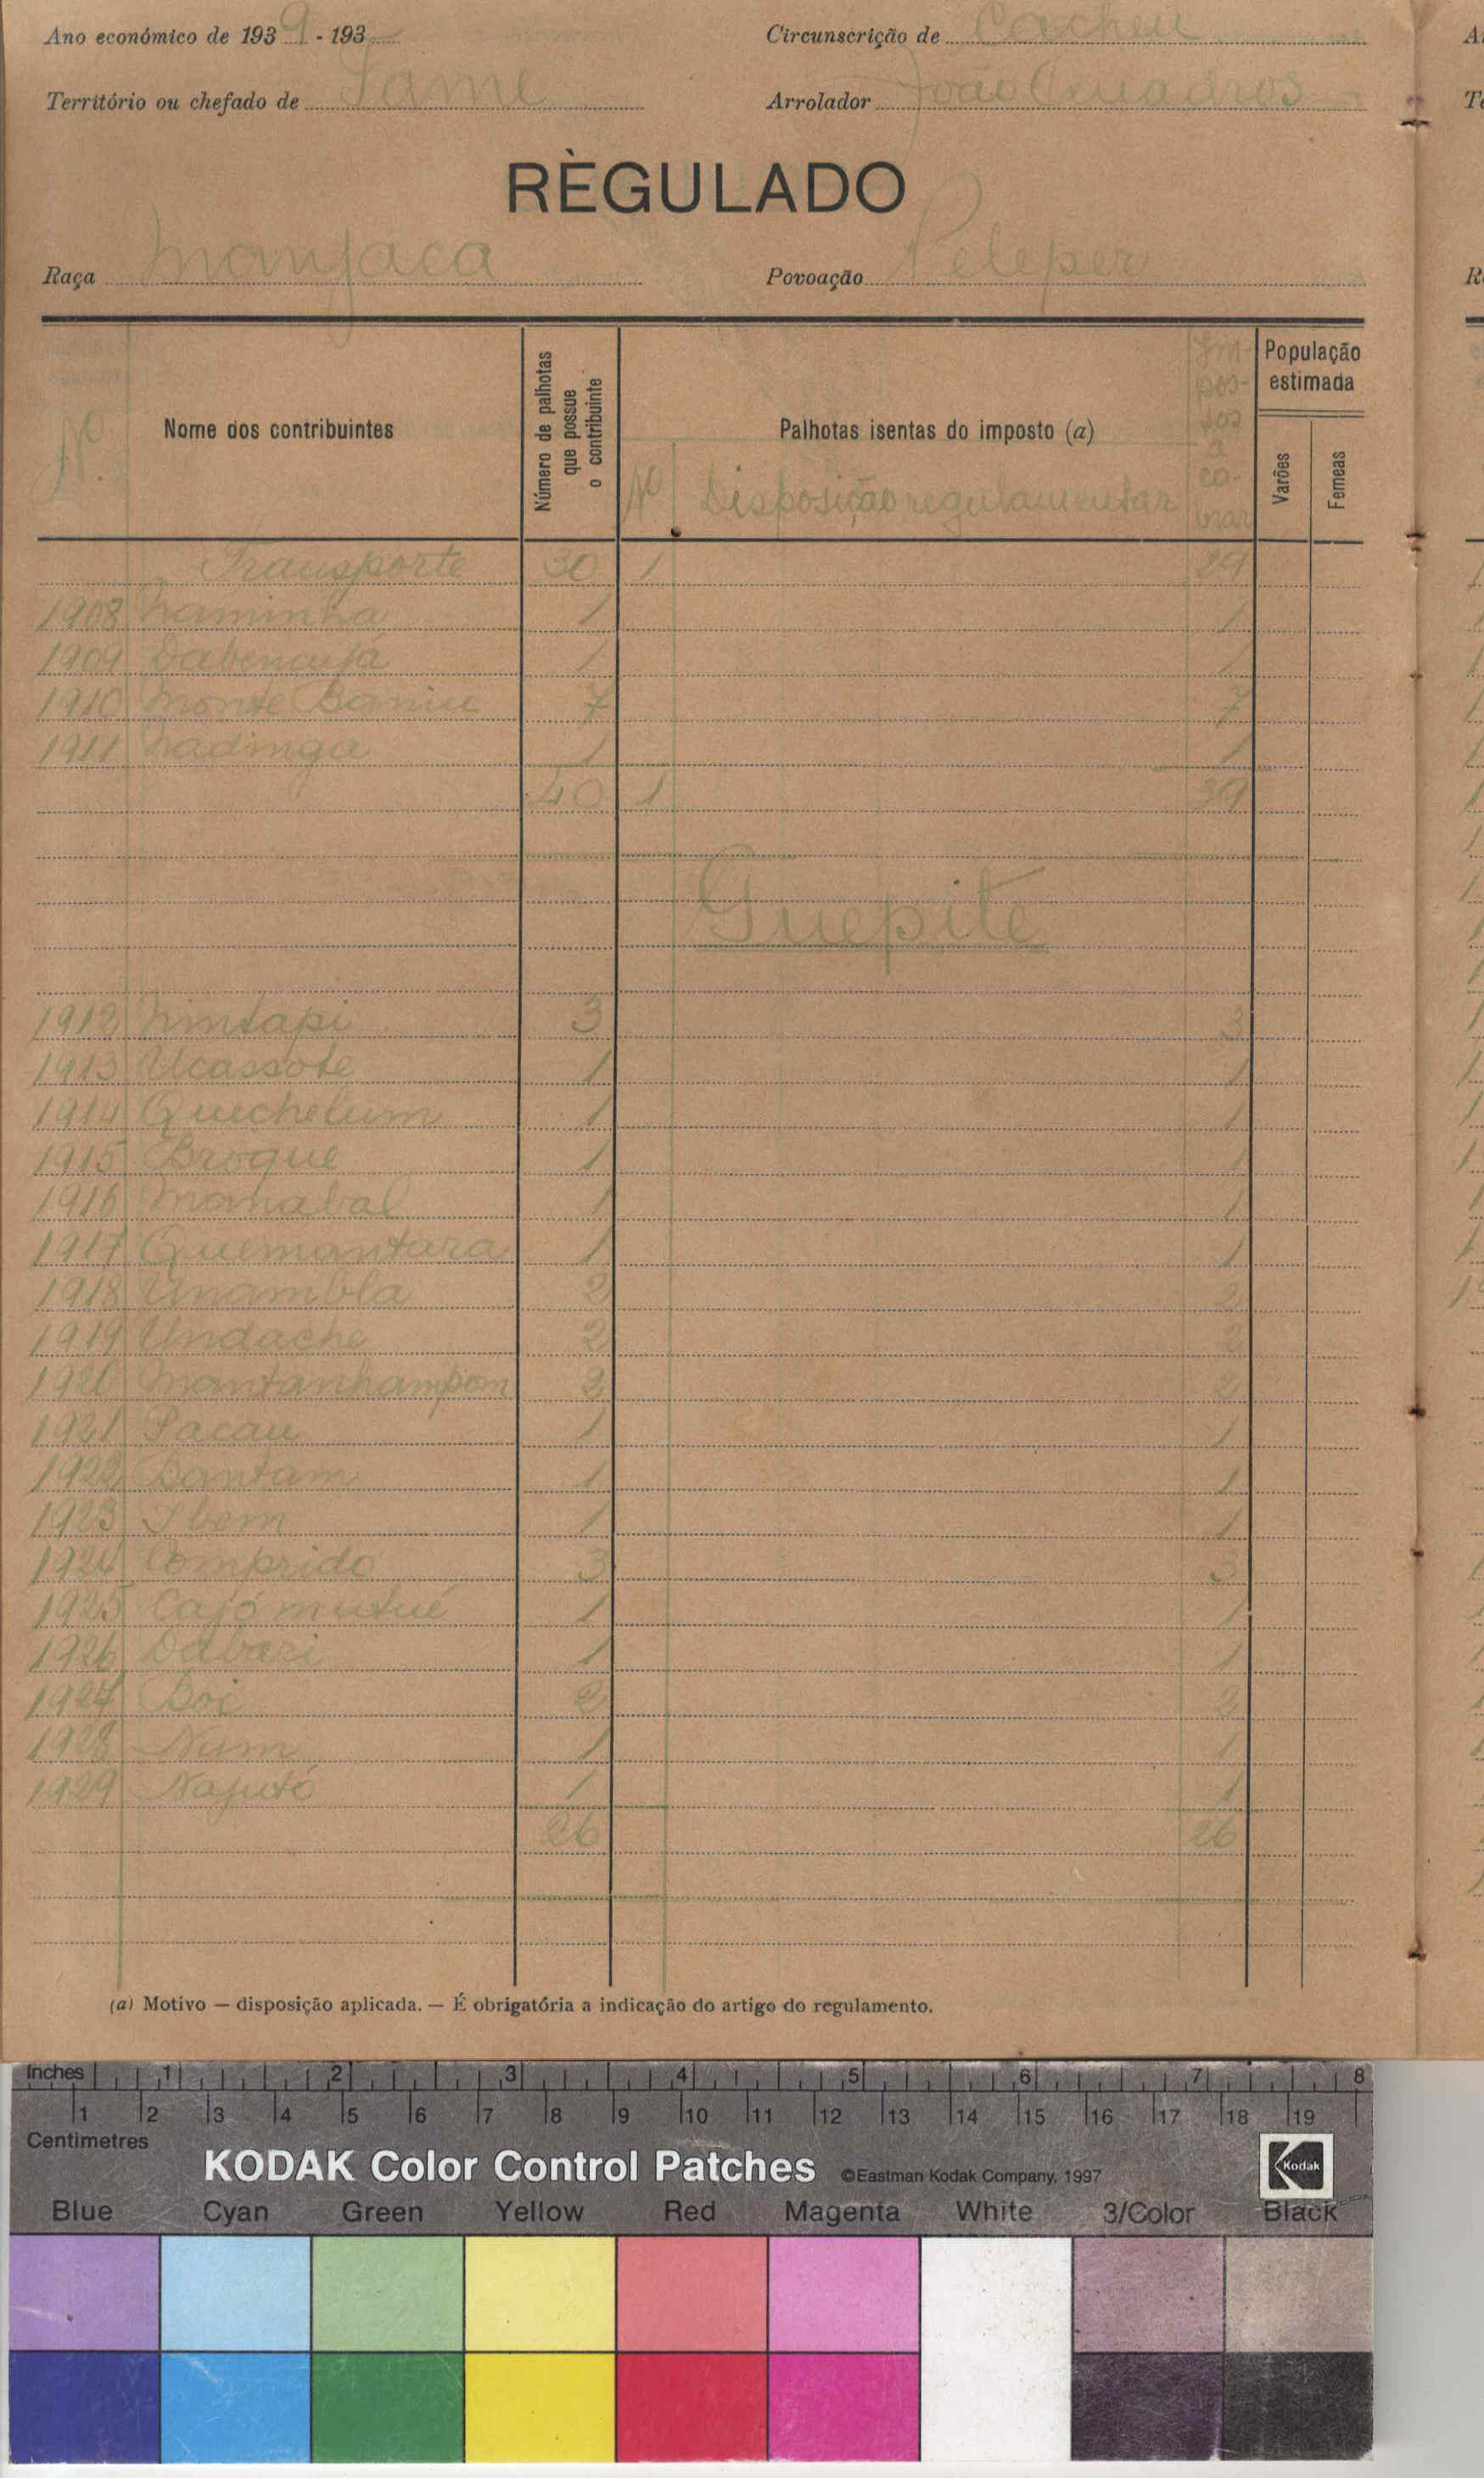 Ano económico de 1939 - 193
Circunscrição de Cacheu
Território ou chefado de Iame
Arrolador João Quadros
RÈGULADO
Raça Manjaca
Povoação Peleper
Nº
Nome dos contribuintes
Número de palhotas que possue o contribuinte
Palhotas isentas do imposto (a)
Nº Disposição regulamentar
Im-
pos-
tos
a
co-
brar
População estimada
Varões
Femeas
Transporte 30 1 29
1908 Naminha 1 1
1909 Dabencufa 1 1
1910 Monte Baniu 7 7
1911 Nadinga 1 1
40 1 39
Guepite
1912 Nintapi 3 3
1913 Ucassote 1 1
1914 Quechelum 1 1
1915 Broque 1 1
1916 Manabal 1 1
1917 Quemantara 1 1
1918 Unambla 2 2
1919 Undache 2 2
1920 Mantanhampom 2 2
1921 Pacau 1 1
1922 Bantam 1 1
1923 Ibem 1 1
1924 Comprido 3 3
1925 Cajómutué 1 1
1926 Dabari 1 1
1927 Boi 2 2
1928 Num 1 1
1929 Najutó 1 1
26 26
(a) Motivo — disposição aplicada. — É obrigatória a indicação do artigo do regulamento.
Inches 1 2 3 4 5 6 7 8
1 2 3 4 5 6 7 8 9 10 11 12 13 14 15 16 17 18 19
Centimetres
KODAK Color Control Patches ©Eastman Kodak Company, 1997 Kodak
Blue Cyan Green Yellow Red Magenta White 3/Color Black